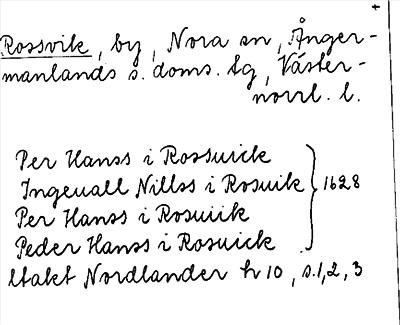 Rossvik, by, Nora sn, Ånger-
manlands s. doms. tg, Väster-
norrl. l.
Per Hanss i Rossuick
Ingeuall Nillss i Rosuik
Per Hanss i Rosuiik } 1628
Peder Hanss i Rosuick
Utakt Nordlander h 10, s. 1, 2, 3